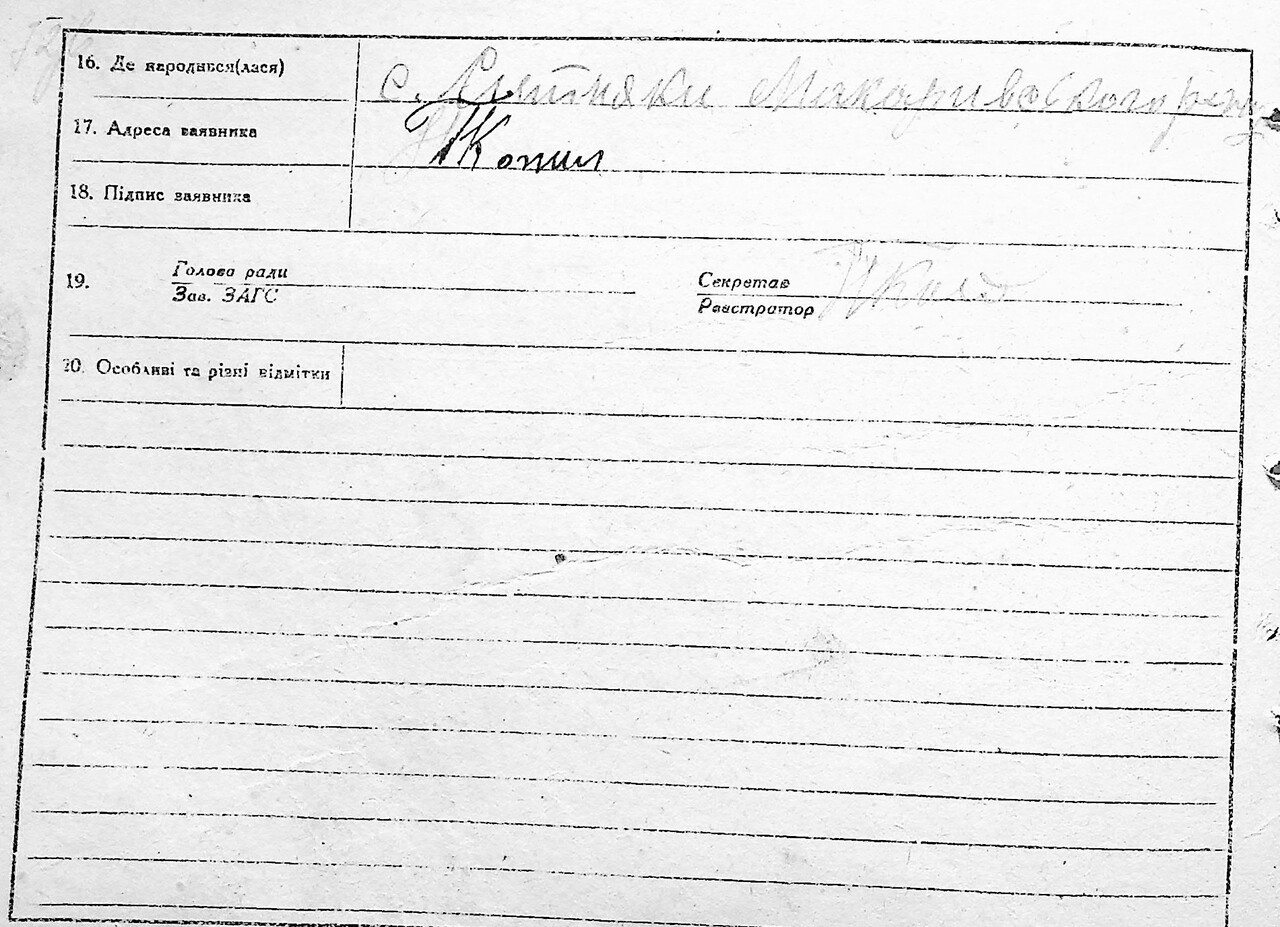 16. Де народився(лася)
с. Липняки Макарівського р-ну
17. Адреса заявника
Копил
18. Підпис заявника
19.
Голова ради
Зав. ЗАГС
Секретар
Реєстратор
20. Особливі та різні відмітки